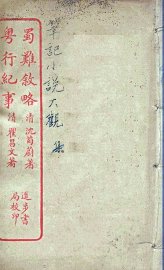 蜀難敘略 清 沈荀蔚著
粵行紀事 清 瞿昌文著
進步書
局校印
筆記小說大觀